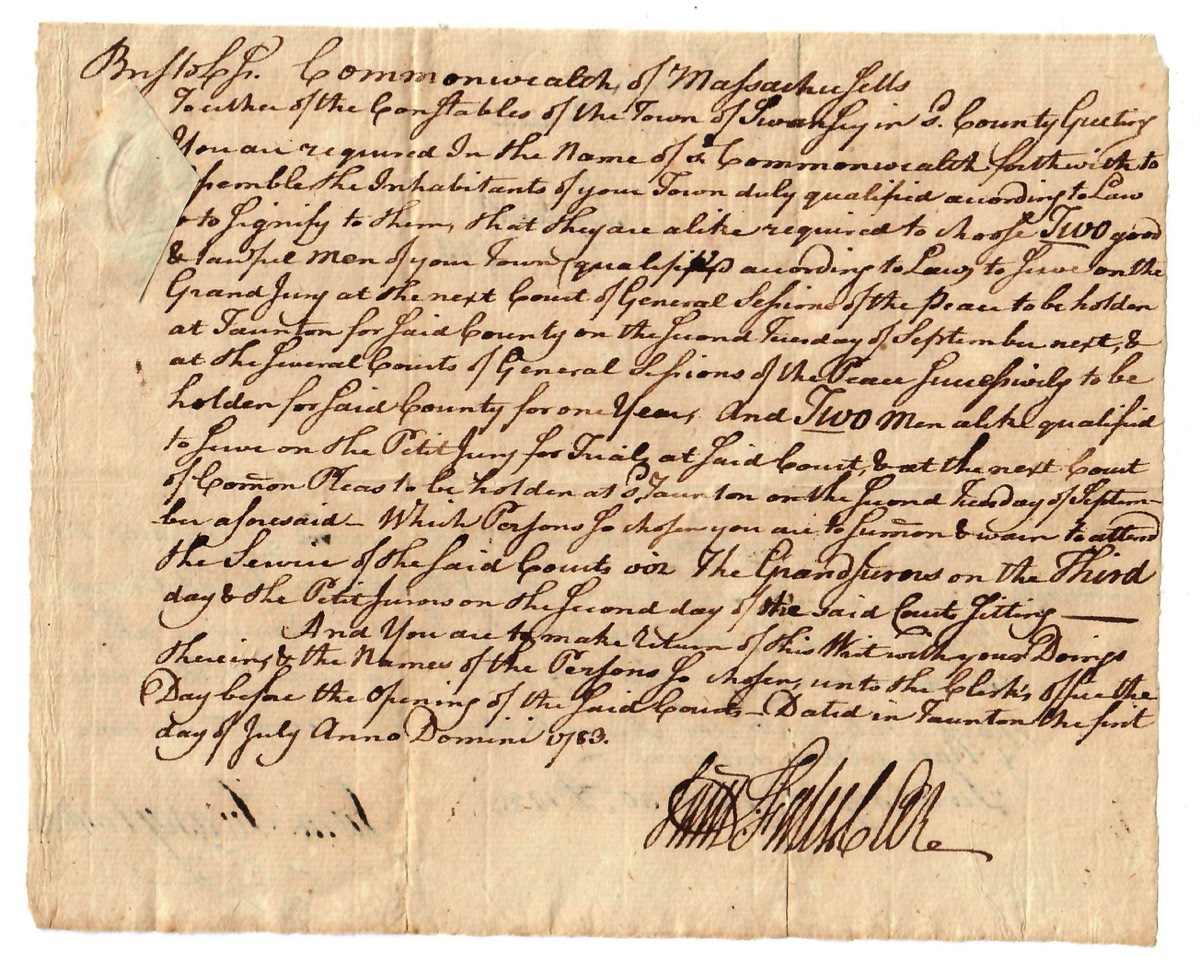 Bristol Ss. Commonwealth, of Massachusetts
To either of the Constables of the Town of Swansey in Sd. County Greeting
You are required In the Name of sd. Commonwealth forthwith to
ssemble the Inhabitants of your Town duly qualified according to Law
& to Signify to them, that they are alike required to choose Two good
& lawful Men of your Town (qualified according to Law, to Serve on the
Grand Jury at the next Court of General Sessions of the Peace to be holden
at Taunton for Said County on the Second Tuesday of September next, &
at the Several Courts of General Sessions of the Peace Successively to be
holden for Said County for one Year, And Two Men alike qualified
to Serve on the Petit Jury for Trials, at Said Court, & at the next Court
of Com̄on Pleas to be holden at Sd. Taunton on the Second Tuesday of Septem-
ber aforesaid – Which Persons So chosen you are to Sum̄on & warn to attend
the Service of the Said Courts viz The Grand Jurors on the Third
day & the Petit Jurors on the Second day of the said Court Sitting —
And You are to make return of this Writ with your Doings
therein, & the Names of the Persons So chosen, unto the Clerk's office the
Day before the Opening of the Said Courts – Dated in Taunton the first
day of July Anno Domini 1783.
Cler